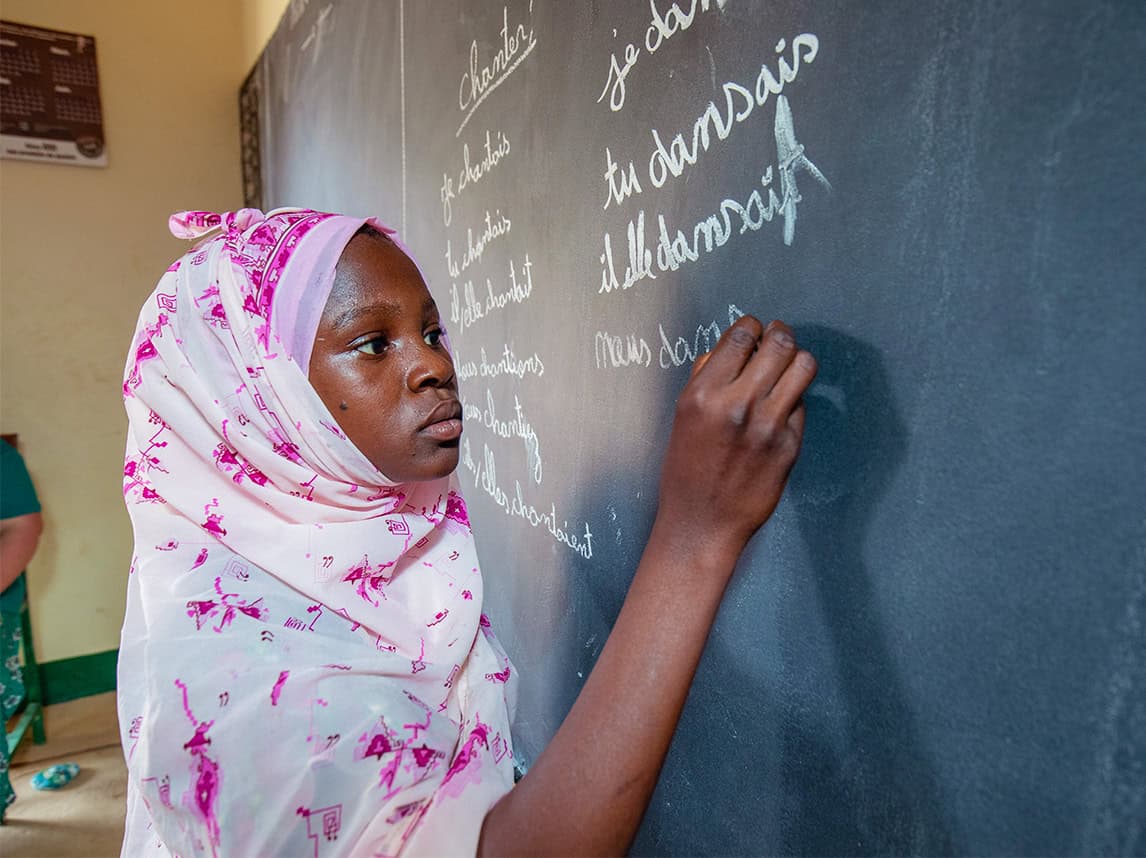 chanter
je chantais
tu chantais
il/elle chantait
nous chantions
chantiez
/elles chantaient
je dan
tu dansais
il elle dansait
nous dans